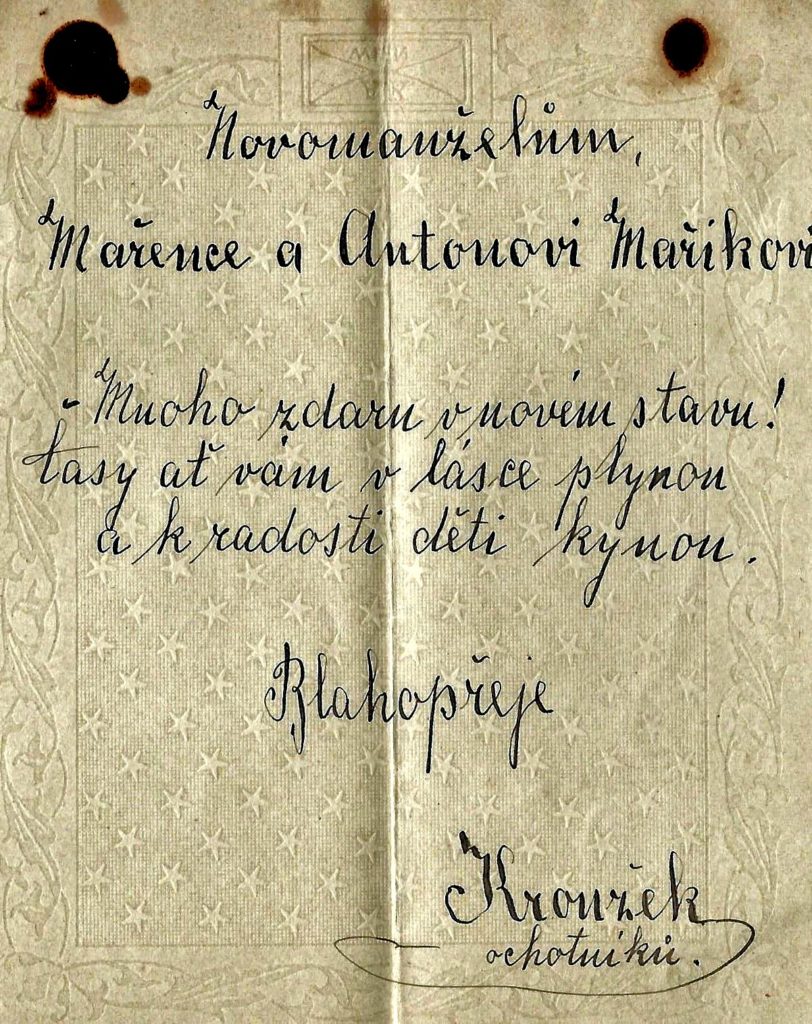 Novomanželům,
Mařence a Antonovi Maříkovi
- Mnoho zdaru v novém stavu!
Časy ať vám v lásce plynou
a k radosti děti kynou.
Blahopřeje
Kroužek
ochotníků.